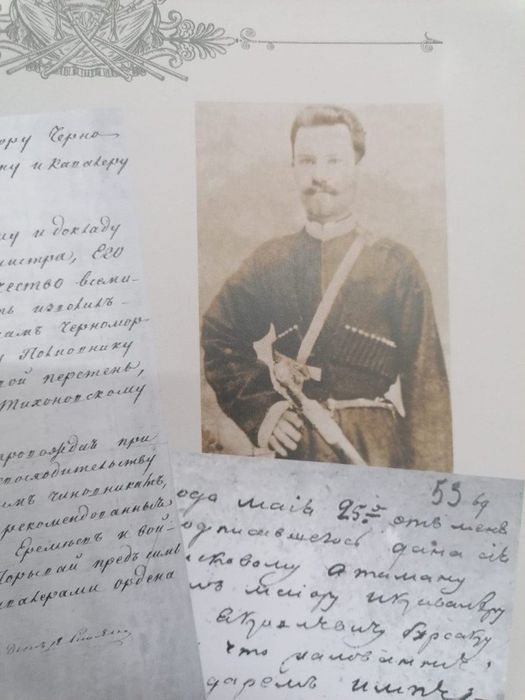 ору Черно-
ну и кавалеру
му и докладу
нистра, Его
чество всеми-
ть изволил-
камъ Черномор-
Полковнику
ой перстень,
Тихоновскому
препровождая при
превосходительству
имъ чиновникамъ,
рекомендованныхъ
Еремѣевъ и вой-
Порывай предъ симъ
валерами ордена
53
ода маія 25го отъ меня
одписавшегося дана сія
сковому атаману
маіору и кавалеру
Бурсаку
что
даремъ